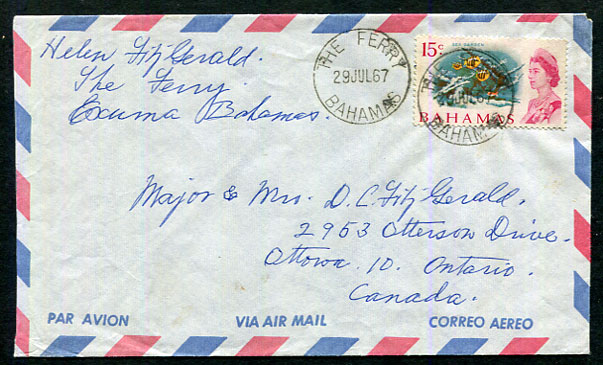 Helen FitzGerald.
The Ferry.
Exuma Bahamas.
THE FERRY
29 JUL 67
BAHAMAS
15c
SEA GARDEN
BAHAMAS
THE FERRY
29 JUL 67
BAHAMAS
Major & Mrs. D. C. FitzGerald.
2953 Otterson Drive.
Ottowa. 10. Ontario.
Canada.
PAR AVION
VIA AIR MAIL
CORREO AEREO